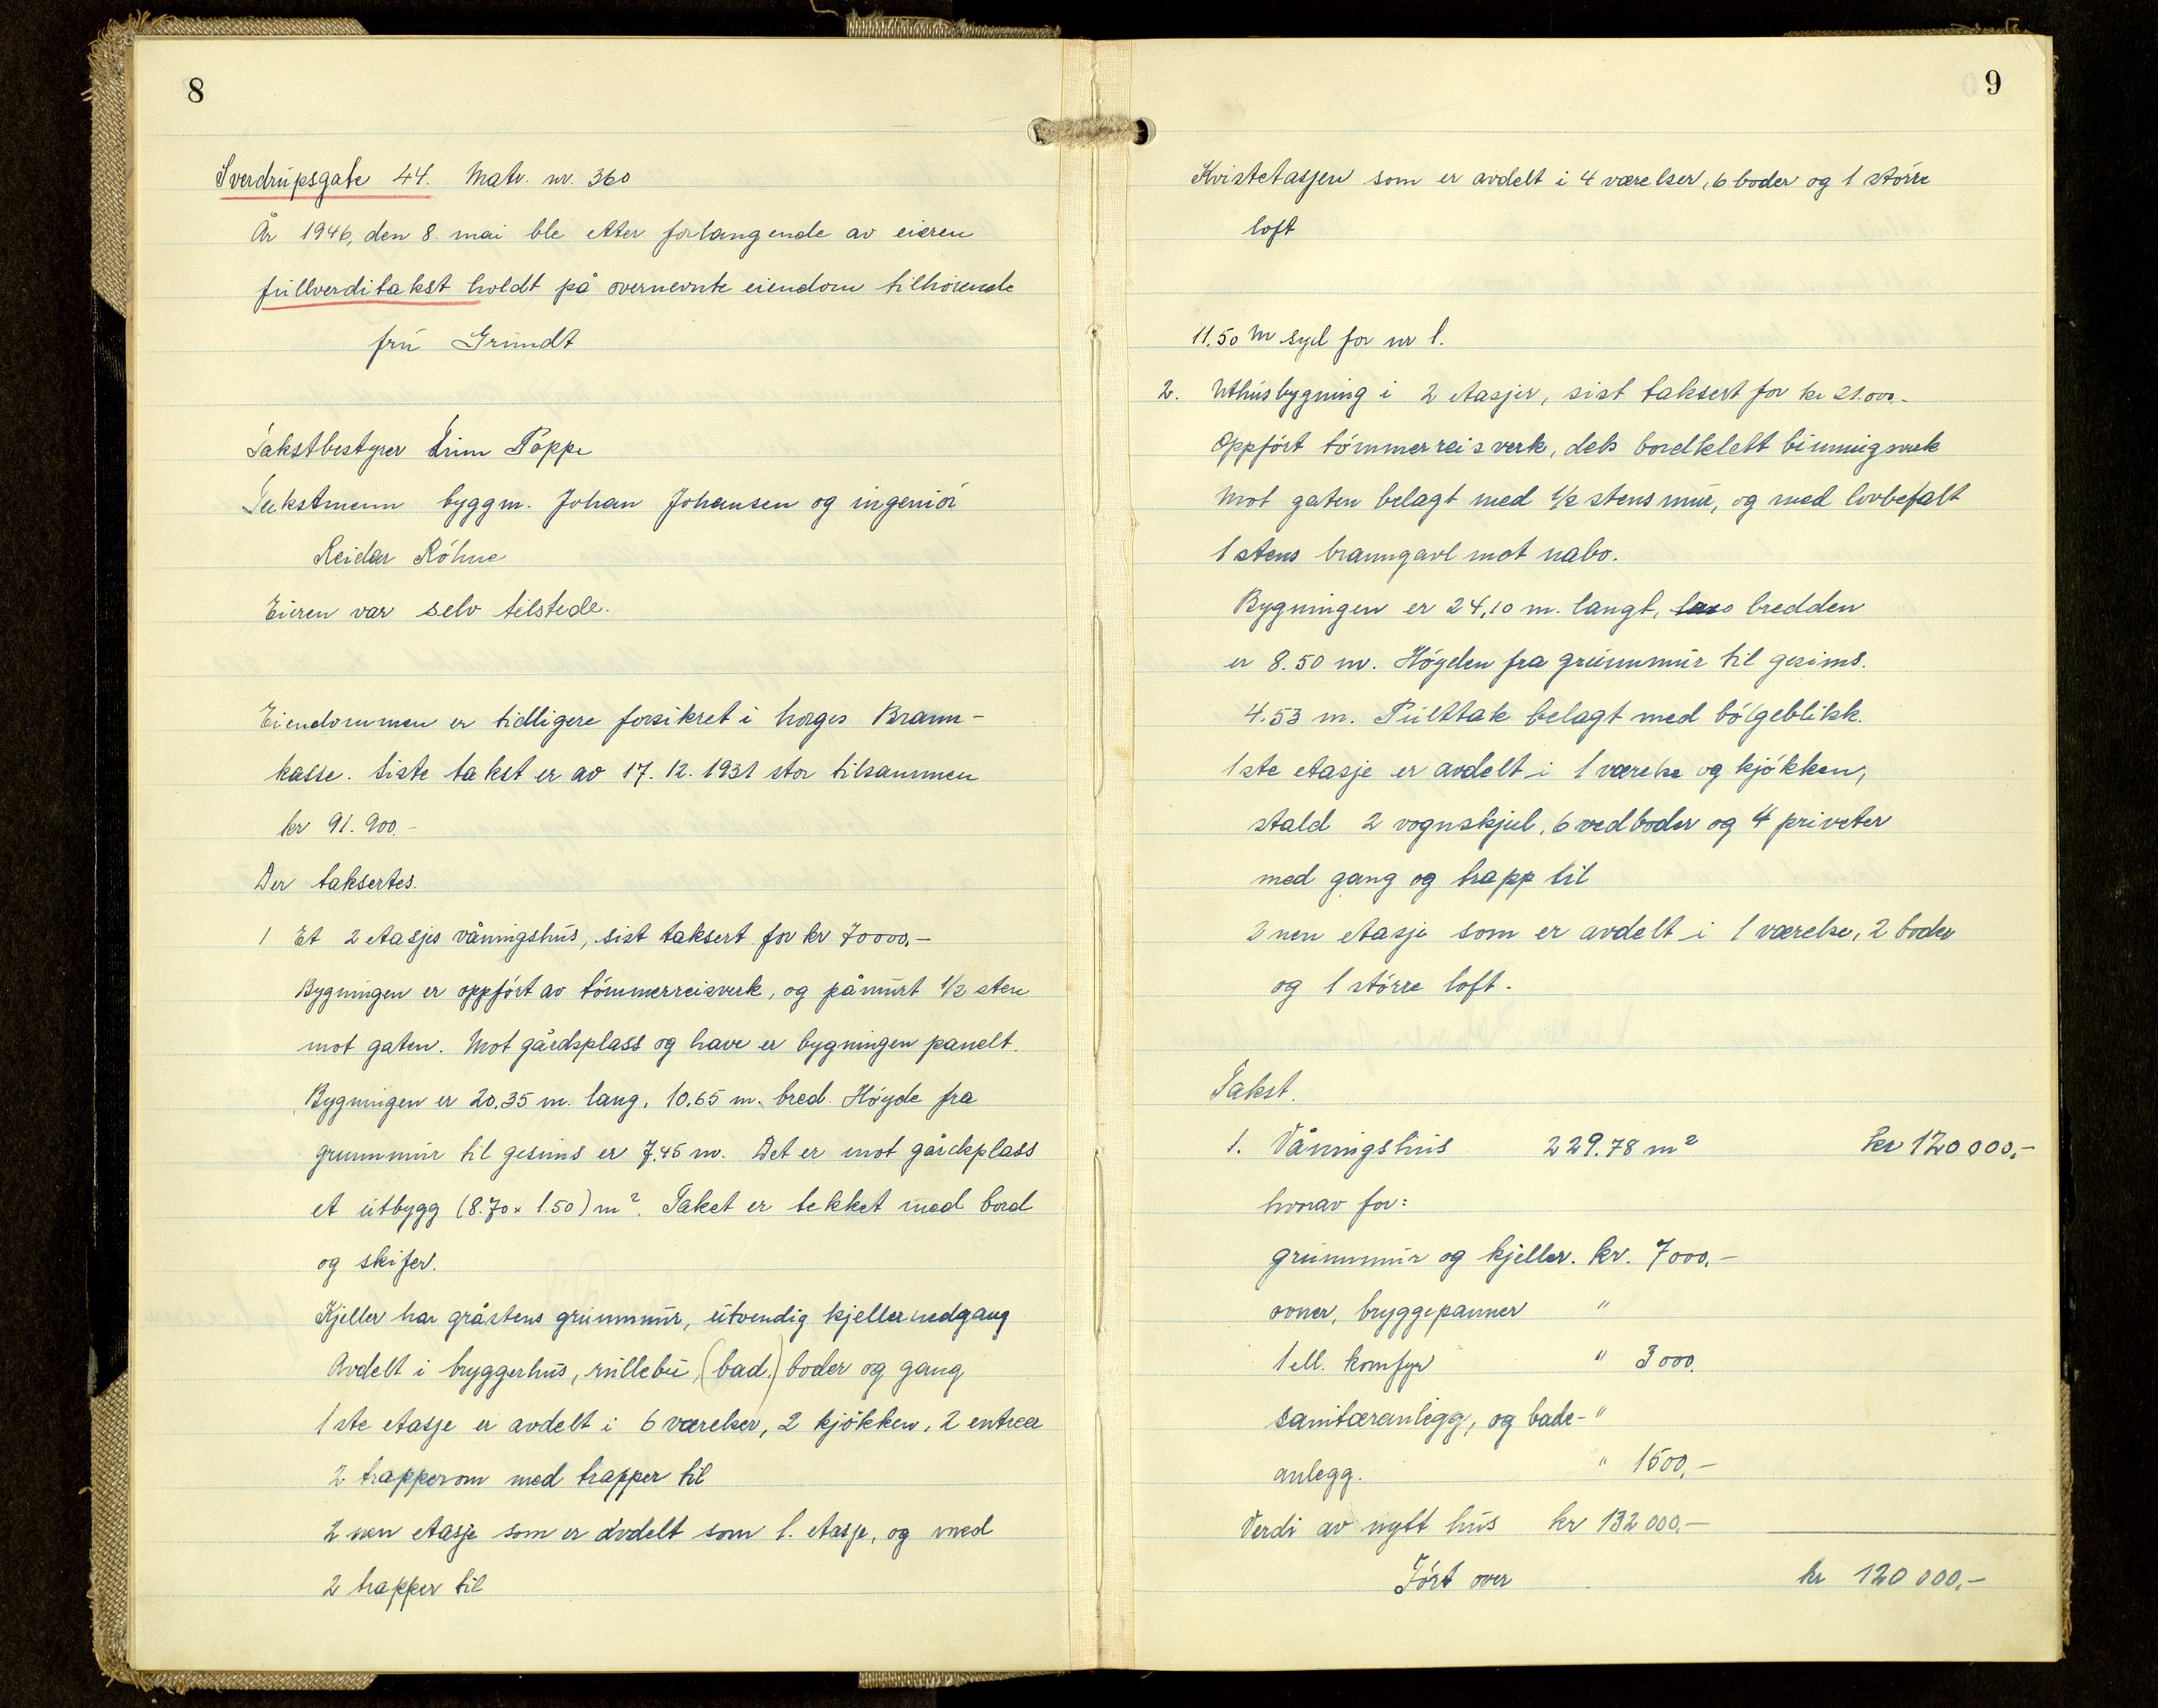 8
Sverdrupsgate 44. Matr. nr. 360
År 1946, den 8. mai ble etter forlangende av eieren
fullverditakst holdt på overnevnte eiendom tilhörende
fru Grundt
Takstbestyrer Trim Poppe
Takstmenn byggm. Johan Johansen og ingeniör
Reidar Röhne
Eieren var selv tilstede.
Eiendommen er tidligere forsikret i Norges Brann-
kasse. Siste takst er av 17.12.1931 stor tilsammen
kr 91.900.-
Der taksertes.
1 Et 2 etasjes våningshus, sist taksert for kr 70000,-
Bygningen er oppfört av tömmerreisverk, og påmurt 1/2 sten
mot gaten. Mot gårdsplass og have er bygningen panelt.
Bygningen er 20,35 m. lang, 10,65 m. bred. Höyde fra
grunnmur til gesims er 7,45 m. Det er mot gårdsplass
et utbygg (8.70 x 1.50) m². Taket er tekket med bord
og skifer.
Kjeller har gråstens grunnmur, utvendig kjellernedgang
Avdelt i bryggerhus, rullebu, (bad,) boder og gang
1ste etasje er avdelt i 6 værelser, 2 kjökken, 2 entreer
2 trapperom med trapper til
2 nen etasje som er avdelt som 1. etasje, og med
2 trapper til
9
Kvistetasjen som er avdelt i 4 værelser, 6 boder og 1 större
loft
11.50 m syd for nr 1.
2. Uthusbygning i 2 etasjer, sist taksert for kr 21.000.-
Oppfört tömmerreisverk, dels bordklett binningsverk
Mot gaten belagt med 1/2 stens mur, og med lovbefalt
1 stens branngavl mot nabo.
Bygningen er 24,10 m. langt, bredden
er 8.50 m. Högden fra grunnmur til gesims.
4.53 m. Pulttak belagt med bölgeblikk.
1ste etasje er avdelt i 1 værelse og kjökken,
stald 2 vognskjul, 6 vedboder og 4 priveter
med gang og trapp til
2nen etasje som er avdelt i 1 værelse, 2 boder
og 1 större loft.
Takst.
1. Våningshus 229.78 m² kr 120000,-
hvorav for:
grunnmur og kjeller. kr. 7000,-
ovner, bryggepanner "
1 ell. komfyr " 3000.
sanitæranlegg, og bade- "
anlegg. " 1500,-
Verdi av nytt hus kr 132000,-
Fört over kr 120000,-